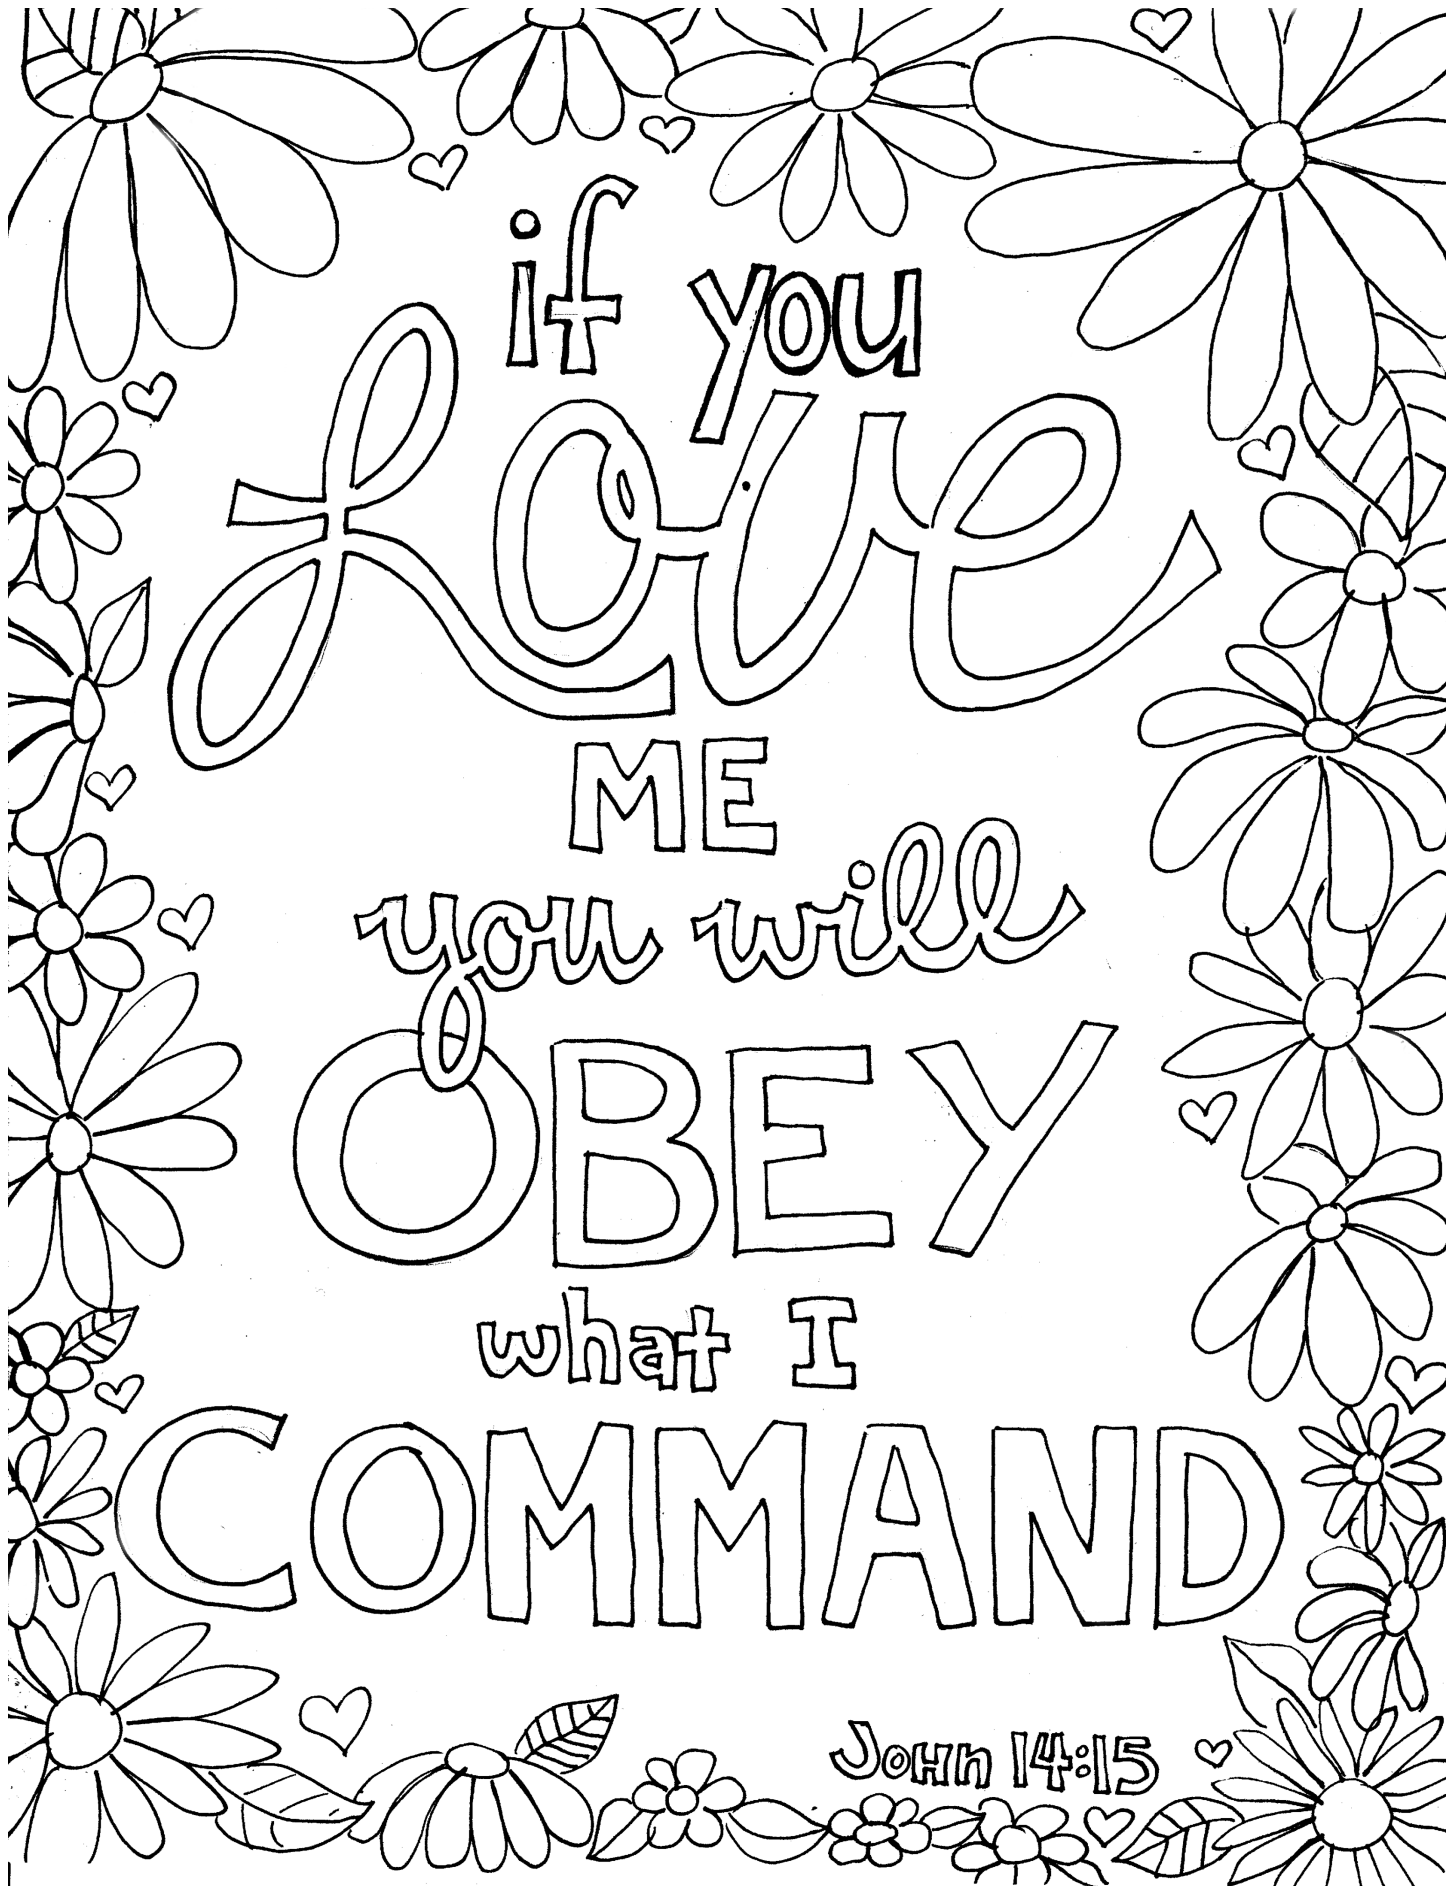 if you
Love
ME
you will
OBEY
what I
COMMAND
JOHn 14:15